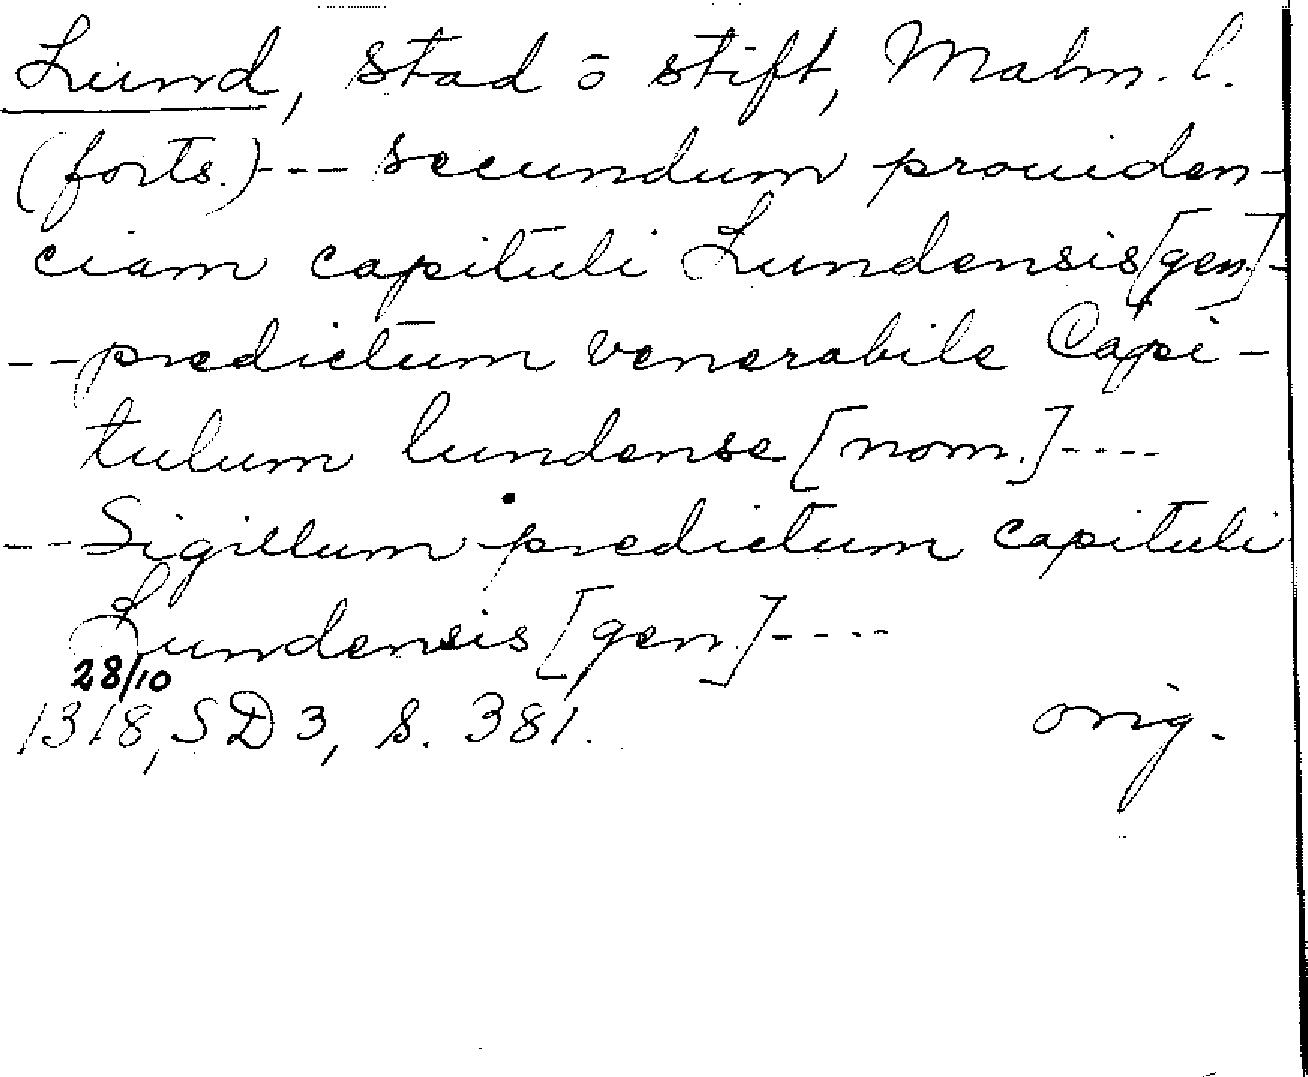 Lund, stad o stift, Malm. l.
(forts.) --- secundum prouiden-
ciam capituli Lundensis [gen.] -
-- predictum venerabile Capi-
tulum lundense [nom.] ----
-- Sigillum predictum capituli
Lundensis [gen.] ----
28/10
1318, SD 3, s. 381. orig.